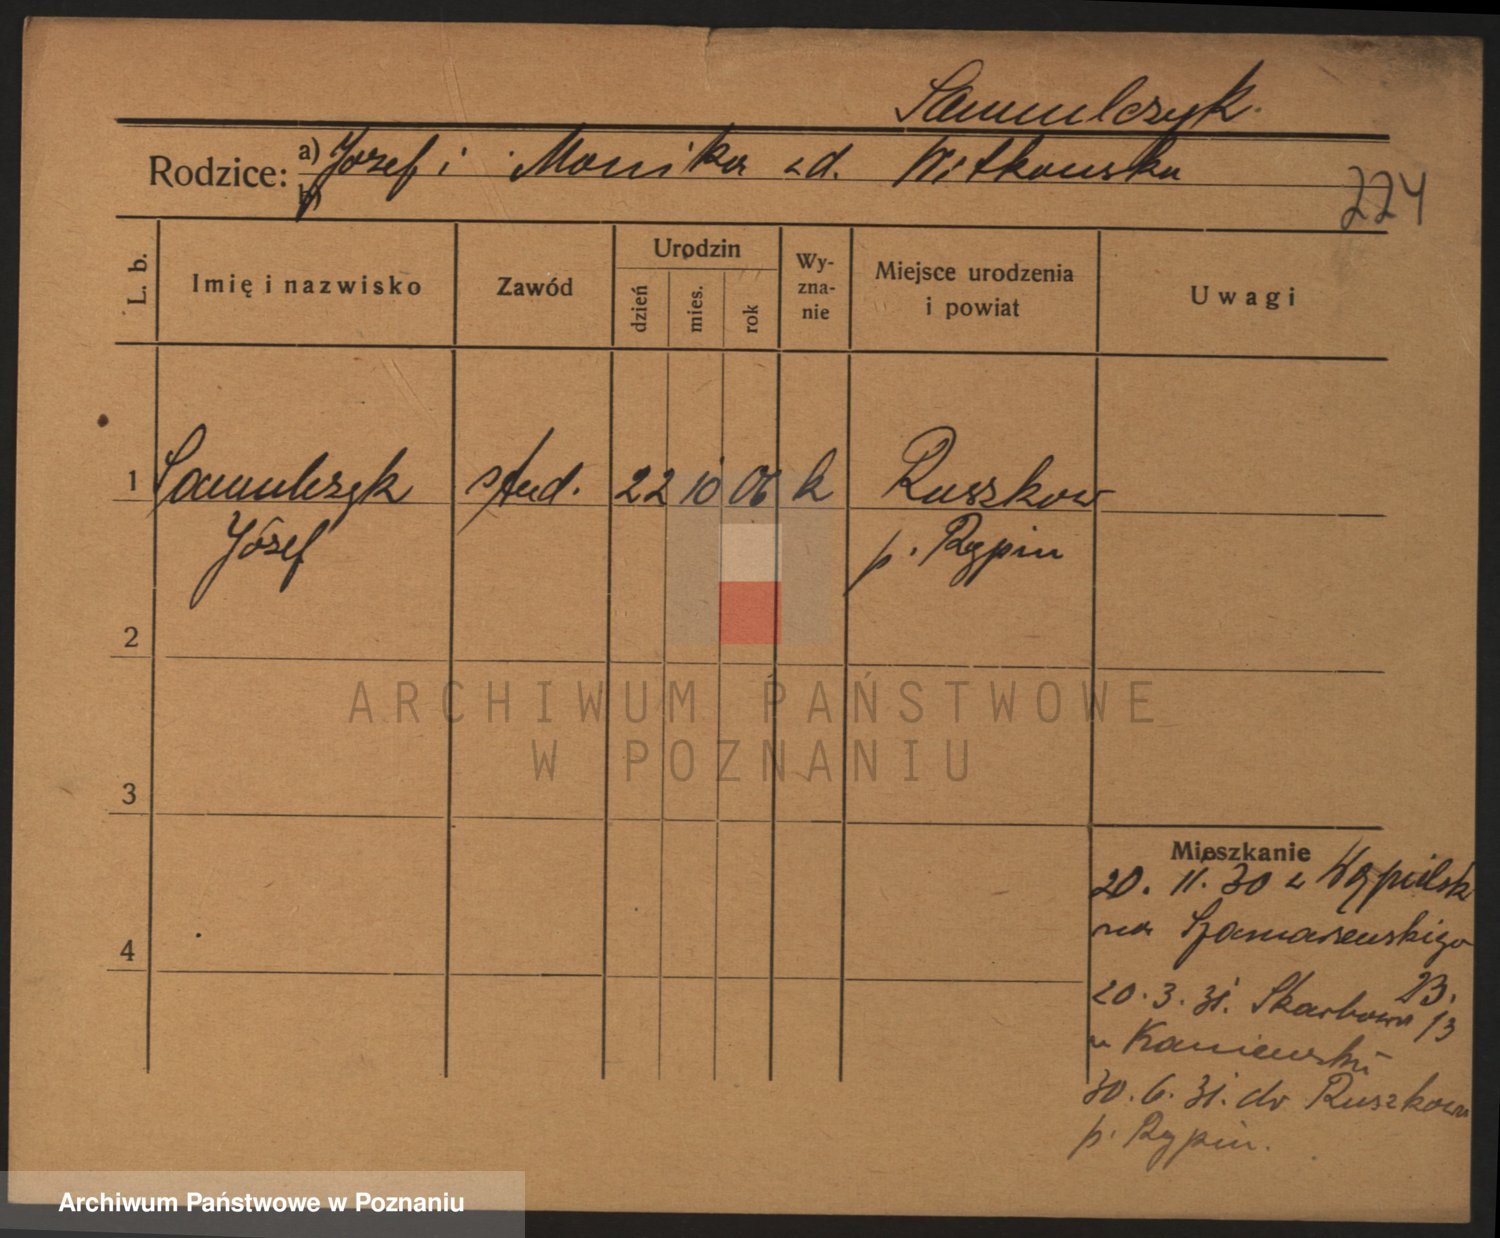 Samulczyk.
Rodzice: a) Józef i Monika zd. Witkowska
b)
224
L. b.
Imię i nazwisko
Zawód
Urodzin
dzień
mies.
rok
Wy-
zna-
nie
Miejsce urodzenia
i powiat
Uwagi
1 Samulczyk stud. 22 10 06 k Ruszkowo
Józef p. Rypin
2
3
4
Mieszkanie
20. 11. 30 z
na Szamarzewskiego
23.
20. 3. 31. Skarbowa 13
u Kaniewski
30. 6. 31. do Ruszkowa
p. Rypin.
ARCHIWUM PAŃSTWOWE
W POZNANIU
Archiwum Państwowe w Poznaniu